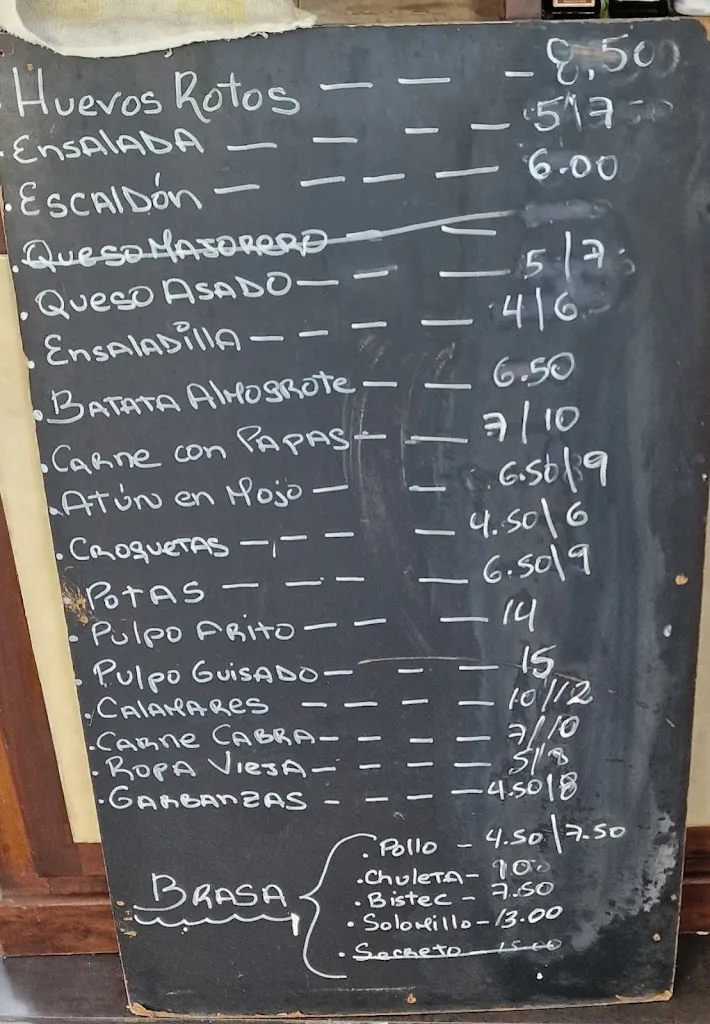 Huevos Rotos — — — 8,50
. Ensalada — — — — 5/7
. Escaldón — — — — 6.00
. ~~Queso Majorero~~ — —
. Queso Asado — — — 5/7
. Ensaladilla — — — — — 4/6
. Batata Almogrote — — — 6.50
. Carne con Papas — — 7/10
. Atún en Mojo — — 6.50/9
. Croquetas — — — — 4.50\6
Potas — — — — 6.50\9
. Pulpo Frito — — — — 14
. Pulpo Guisado — — — 15
. Calamares — — — — — 10/12
. Carne Cabra — — — — 7/10
. Ropa Vieja — — — — 5/8
. Garbanzas — — — — 4.50/8
Brasa
. Pollo — 4.50/7.50
. Chuleta —
. Bistec — 7.50
. Solomillo — 13.00
. ~~Secreto 15.00~~